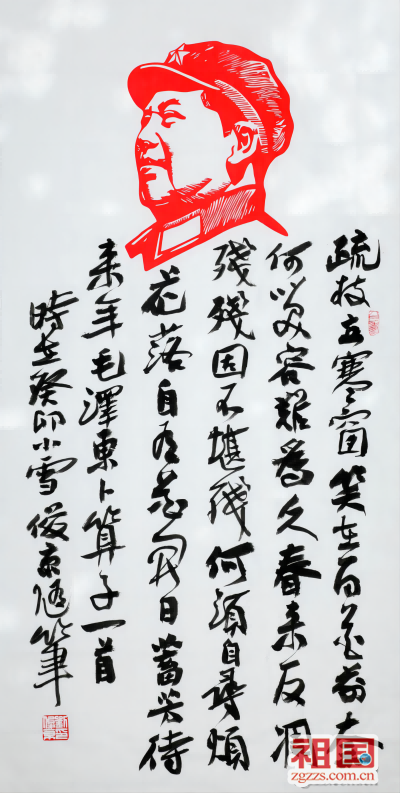 疏枝立寒窗笑在百花前奈
何笑容難為久春来反凋
殘殘因不堪殘何須自尋煩
花落自有花開日蓄芳待
来年毛澤東卜算子一首
時在癸卯小雪俊京随筆
祖国
zgzzs.com.cn